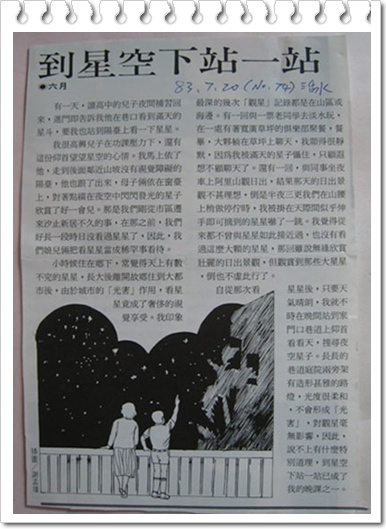 到星空下站一站
●六月
83.7.20 (No.74)
有一天,讀高中的兒子夜間補習回
來,進門即告訴我他在巷口看到滿天的
星斗,要我也站到陽臺上看一下星星。
我很高興兒子在功課壓力下,還有
這份仰首望望星空的心情。我馬上依了
他,走到後面鄰近山坡沒有視覺障礙的
陽臺,他也跟了出來,母子倆依在窗臺
上,對著點綴在夜空中閃閃發光的星子
欣賞了好一會兒。那是我們剛從市區遷
來汐止新居不久的事,在那之前,我們
好長一段時日沒看過星星了,因此,我
們娘兒倆把看星星當成稀罕事看待。
小時候住在鄉下,常覺得天上有數
不完的星星,長大後離開故鄉住到大都
市後,由於城市的「光害」作用,看星
星竟成了奢侈的視
覺享受。我印象
最深的幾次「觀星」記錄都是在山區或
海邊。有一回與一票老同學去淡水玩,
在一處有著寬廣草坪的俱樂部聚餐,餐
畢,大夥躺在草坪上聊天,我顯得很靜
默,因為我被滿天的星子儡住,只顧遐
想不顧聊天了。還有一回,與同事坐夜
車上阿里山觀日出,結果那天的日出景
觀不甚理想,倒是半夜三更我們在山腰
上稍做停佇時,我被掛在天際間似乎伸
手即可摘到的星星嚇了一跳。我覺得從
來都不曾與星星如此接近過,也沒有看
過這麼大顆的星星,那回雖說無緣欣賞
壯麗的日出景觀,但觀賞到那些大星星
,倒也不虛此行了。
自從那次看
星星後,只要天
氣晴朗,我就不
時在晚間站到家
門口巷道上仰首
看看天,搜尋夜
空星子。長長的
巷道庭院兩旁架
有造形甚雅的路
燈,光度很柔和
,不會形成「光
害」,對觀星毫
無影響,因此,
說不上有什麼特
別道理,到星空
下站一站已成了
我的晚課之一。